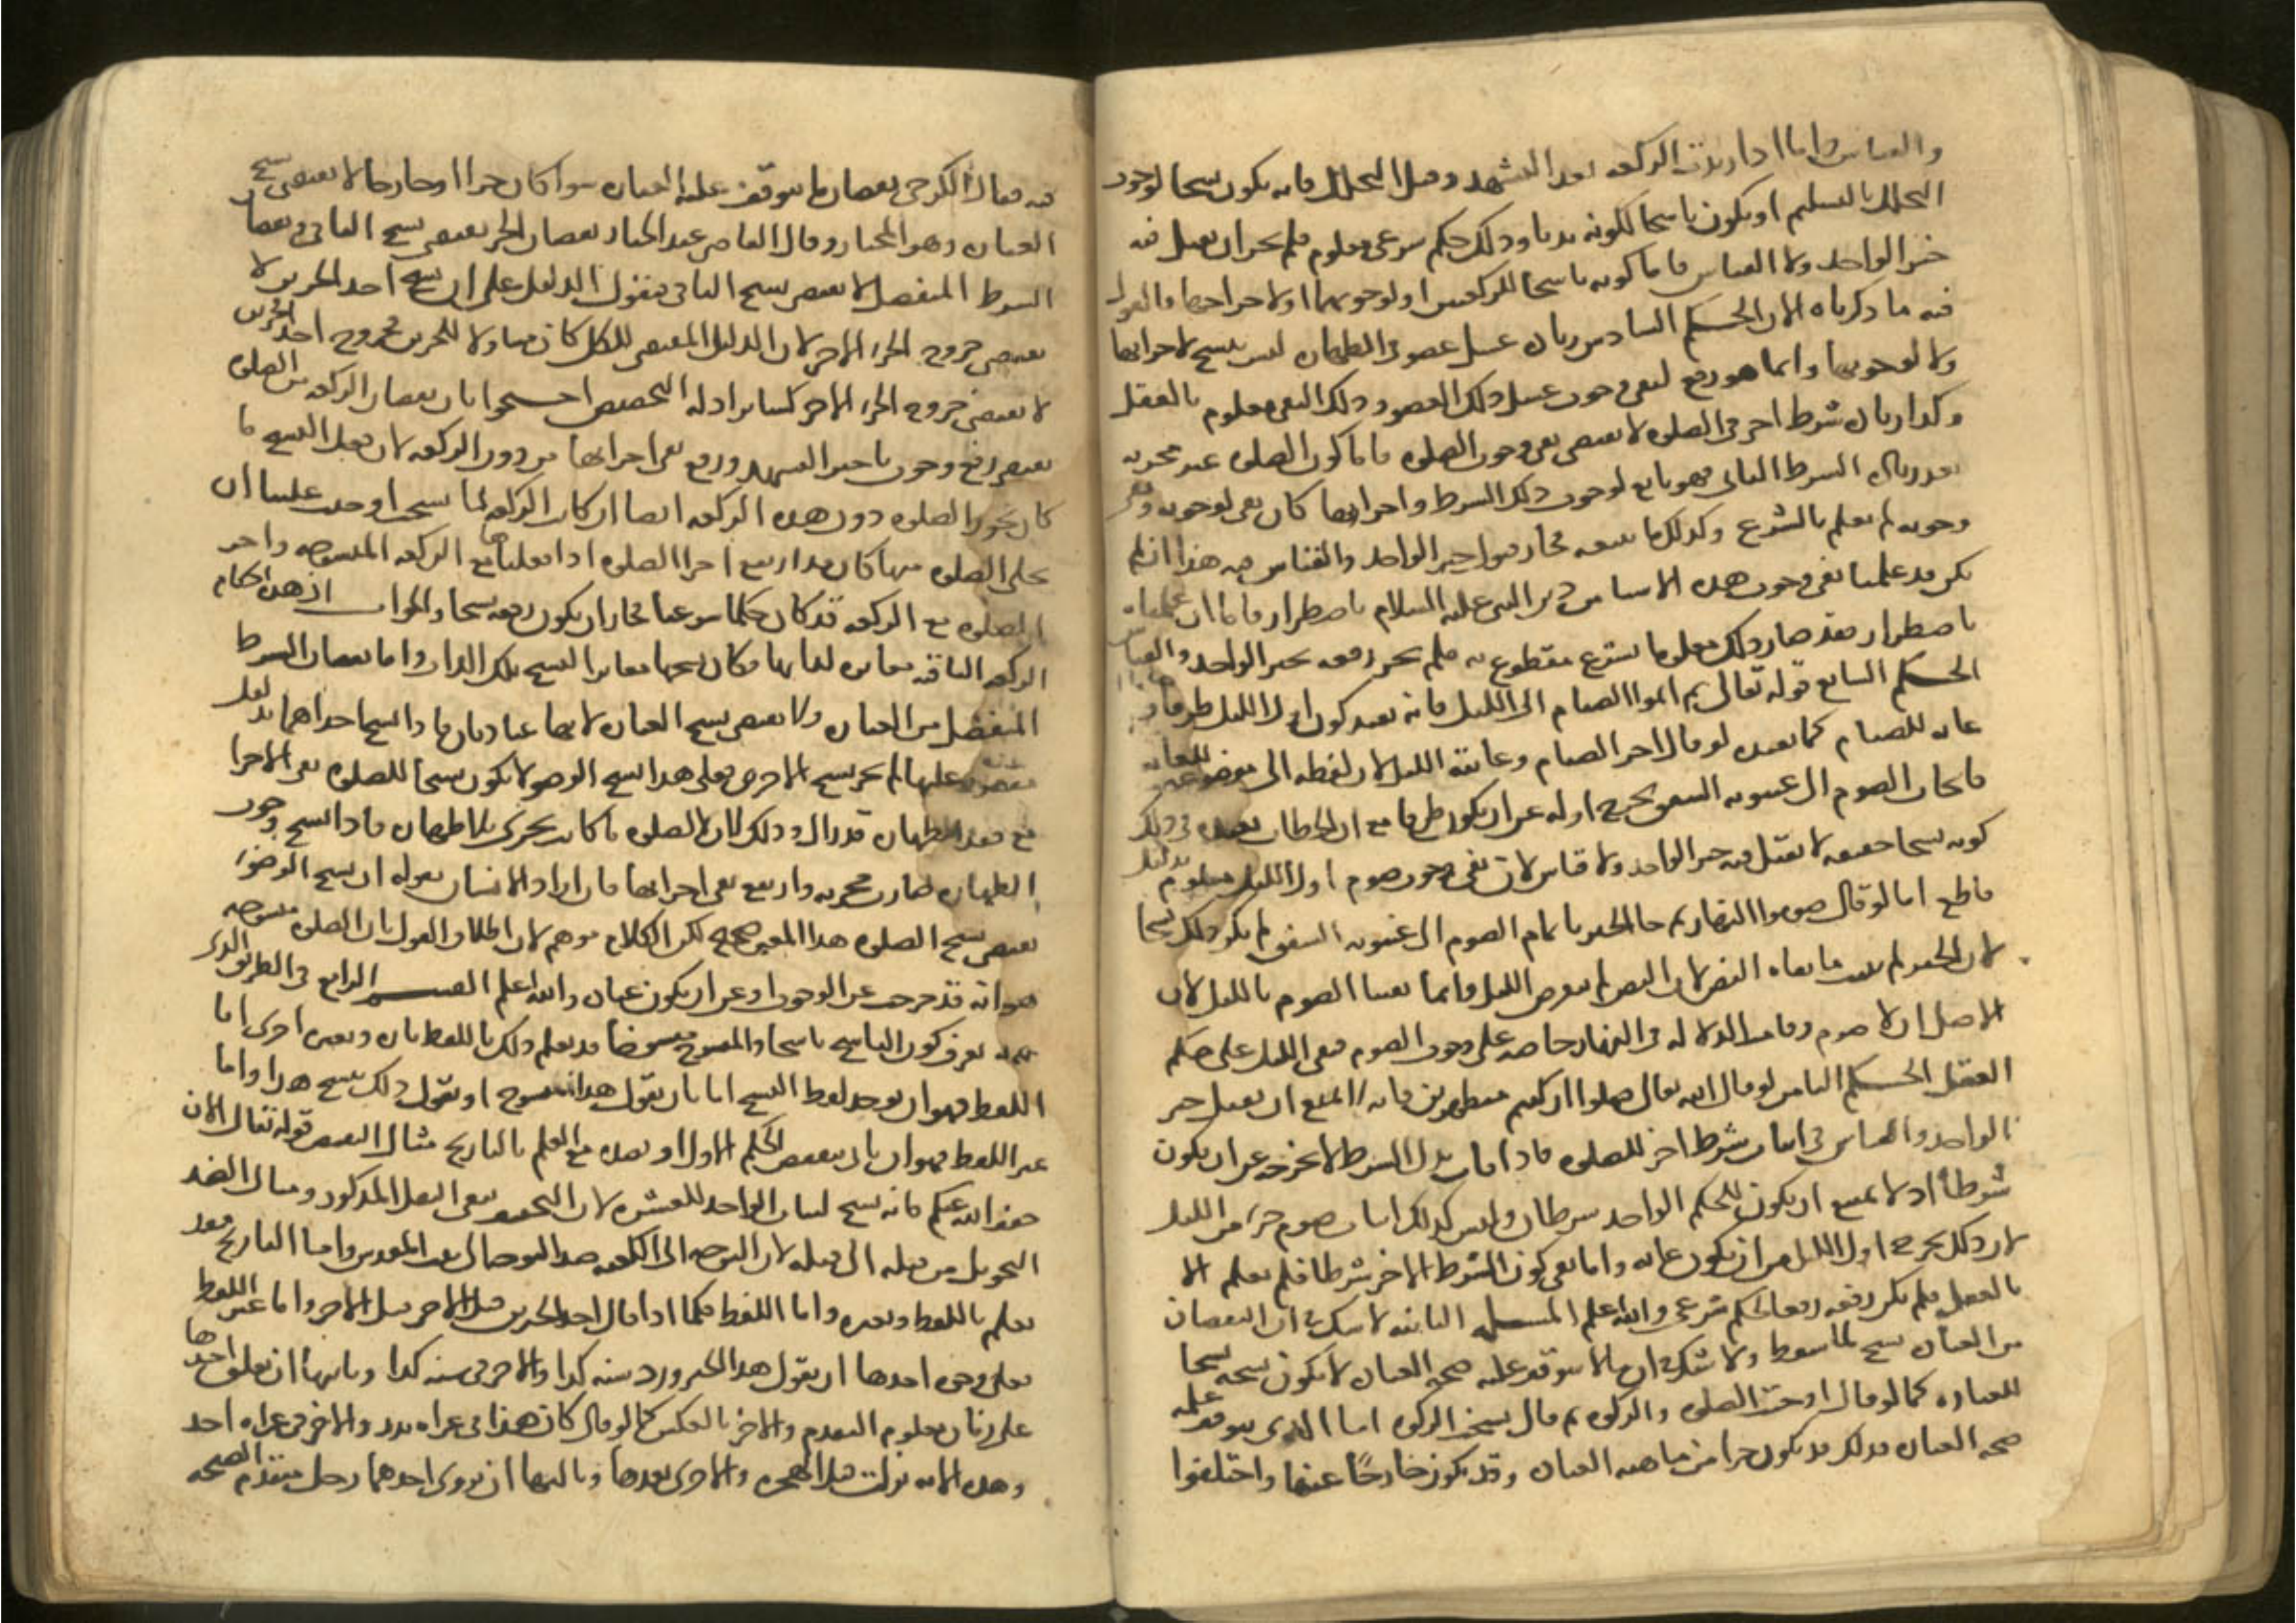 والقياس واما اذا زيدت الركعه بعد التشهد وقبل التحلل فانه يكون نسخا لوجوب
التحلل بالتسليم او يكون ناسخا لكونه ندبا وذلك حكم شرعي معلوم فلم يجز ان يقبل فيه
خبر الواحد ولا القياس فاما كونه ناسخا للركعتين او لوجوبهما او لاجزاهما فالقول
فيه ما ذكرناه الان الحكم السادس زيادة غسل عضو في الطهارة ليس بنسخ لاجزايها
ولا لوجوبها وانما هو رفع لنفي وجوب غسل ذلك العضو وذلك النفي معلوم بالعقل
وكذا زيادة شرط اخر في الصلوه لا يقتضي نفي وجوب الصلوه فاما كون الصلوه غير مجزيه
بعد زيادة الشرط الثاني فهو تابع لوجوب ذلك الشرط واجزاوها كان نفى لوجوبه ونفي
وجوبه لم يعلم بالشرع وكذلك ما يتبعه فجاز قبول خبر الواحد والقياس فيه هذا ان لم
يكن قد علمنا نفي وجوب هذه الاشيا من دين النبي عليه السلام باضطرار فاما ان علمناه
باضطرار فقد صار ذلك معلوما بشرع مقطوع به فلم يجز رفعه بخبر الواحد والقياس
الحكم السابع قوله تعالى ثم اتموا الصيام الى الليل فانه يفيد كون اول الليل طرفا و
غايه للصيام كما يفيده لو قال اخر الصيام وغايته الليل لان لفظه الى موضوعه للغايه
فايجاب الصوم الى غيبوبه الشفق يخرج اوله عن ان يكون طرفا مع ان الخطاب يفيده وذلك
كونه نسخا حقيقه لا يقبل فيه خبر الواحد ولا قياس لان نفي وجوب صوم اول الليل معلوم بدليل
قاطع اما لو قال صوموا النهار ثم جا الخبر باتمام الصوم الى غيبوبه الشفق لم يكن ذلك نسخا
لان الخبر لم يثبت ما نفاه النص لان النص لم يعرض لليل وانما نفينا الصوم بالليل لان
الاصل ان لا صوم وقامت الدلاله في النهار خاصه على وجوب الصوم فبقي الليل على حكم
العقل الحكم الثامن لو قال الله تعالى صلوا ان كنتم متطهرين فانه لا يمنع ان يقبل خبر
الواحد والقياس في اثبات شرط اخر للصلوه فاذا اثبات بدل الشرط لا يخرجه عن ان يكون
شرطا اذ لا يمتنع ان يكون للحكم الواحد شرطان وليس كذلك اثبات صوم جزء من الليل
لان ذلك يخرج اول الليل من ان يكون غايه واما نفي كون الشرط الاخر شرطا فلم يعلم الا
بالعقل فلم يكن رفعه رفعا لحكم شرعي والله اعلم المسله الثانيه لا شك في ان النقصان
من العبادة نسخ لما سقط ولا شك في ان ما لا يتوقف عليه صحه العبادة لا يكون نسخه نسخا
للعباده كما لو قال اوجبت الصلوه والزكوه ثم قال نسخت الزكوه اما الذي يتوقف عليه
صحه العبادة فذلك قد يكون جزا من ماهيه العبادة وقد يكون خارجا عنها واختلفوا
فيه فقال الكرخي نقصان ما يتوقف عليه العبادة سوا كان جزا او خارجا لا يقتضي نسخ
العبادة وهو المختار وقال القاضي عبد الجبار نقصان الجزء يقتضي نسخ الباقي ونقصان
الشرط المنفصل لا يقتضي نسخ الباقي فنقول الدليل على ان نسخ احد الجزين لا
يقتضي خروج الجزء الاخر لان الدليل المقتضي للكل كان متناولا للجزين فخروج احد الجزين
لا يقتضي خروج الجزء الاخر كساير ادله التخصيص احتجوا بان نقصان الركعه من الصلوه
يقتضي رفع وجوب تاخير التشهد ورفع نفي اجزايها من دون الركعه لان قبل النسخ ما
كان يجوز الصلوه دون هذه الركعه ايضا ان كانت الركعه لما نسخت اوجبت علينا ان
نخلي الصلوه منها كان قد ارتفع اجزا الصلوه اذا فعلناها مع الركعه المنسوخه واجزا
الصلوه مع الركعه قد كان حكما شرعيا فجاز ان يكون رفعه نسخا والجواب ان هذه احكام
الركعه الباقيه مغايره لذاتها فكان نسخها مغايرا لنسخ تلك الذات واما نقصان الشرط
المنفصل من العبادة ولا يقتضي نسخ العبادة لانهما عبادتان فاذا نسخ احداهما بدليل
مقصور عليها لم يجز نسخ الاخرى فعلى هذا نسخ الوضو لا يكون نسخا للصلوه بل نفي الاجزا
مع فقد الطهارة قد زال وذلك لان الصلوه ما كانت تجزي بلا طهارة فاذا نسخ وجوب
الطهاره صارت مجزيه وارتفع نفي اجزايها فان اراد الانسان بقوله ان نسخ الوضوء
يقتضي نسخ الصلوه هذا المعنى فصحيح لكن الكلام موهم لان اطلاق القول بان الصلوه منسوخه
هو انه قد خرجت عن الوجوب او عن ان يكون عبادة والله اعلم القسم الرابع في الطريق الذي
به يعرف كون الناسخ ناسخا والمنسوخ منسوخا قد يعلم ذلك باللفظ تارة وبغيره اخرى اما
اللفظ فهو ان يوجد لفظ النسخ اما بان يقول هذا منسوخ او يقول ذلك نسخ هذا واما
غير اللفظ فهو ان ياتي بنقيض الحكم الاول او بضده مع العلم بالتاريخ مثال النقيض قوله تعالى الان
خفف الله عنكم فانه نسخ لثبات الواحد للعشره لان التخفيف نفى الثقل المذكور ومثال الضد
التحويل من قبله الى قبله لان التوجه الى الكعبه ضد التوجه الى بيت المقدس واما التاريخ فقد
يعلم باللفظ وبغيره واما اللفظ فكما اذا قال احد الخبرين قبل الاخر واما غير اللفظ
فعلى وجوه احدها ان يقول هذا الخبر ورد سنه كذا والاخر في سنه كذا وثانيها ان يعلق احدهما
على زمان معلوم التقدم والاخر بالعكس كما لو قال كان هذا في غزاه بدر والاخر في غزاه احد
وهذه الايه نزلت قبل الهجره والاخرى بعدها وثالثها ان يروي احدهما رجل متقدم الصحبه